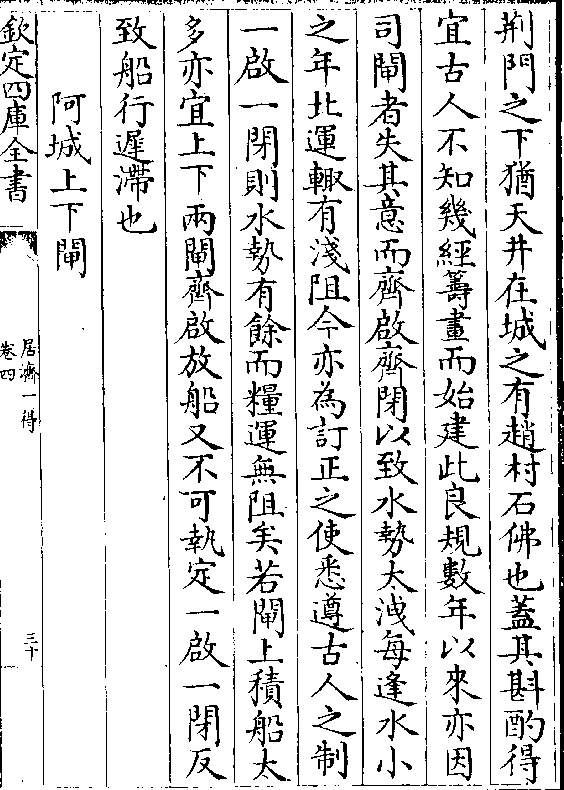 荆門之下猶天井在城之有趙村石佛也蓋其斟酌得
宜古人不知幾經籌畫而始建此良規數年以來亦因
司閘者失其意而齊啟齊閉以致水勢太洩每逢水小
之年北運輙有淺阻今亦為訂正之使悉遵古人之制
一啟一閉則水勢有餘而糧運無阻矣若閘上積船太
多亦宜上下兩閘齊啟放船又不可執定一啟一閉反
致船行遲滯也
阿城上下閘
欽定四庫全書
居濟一得
卷四
三十